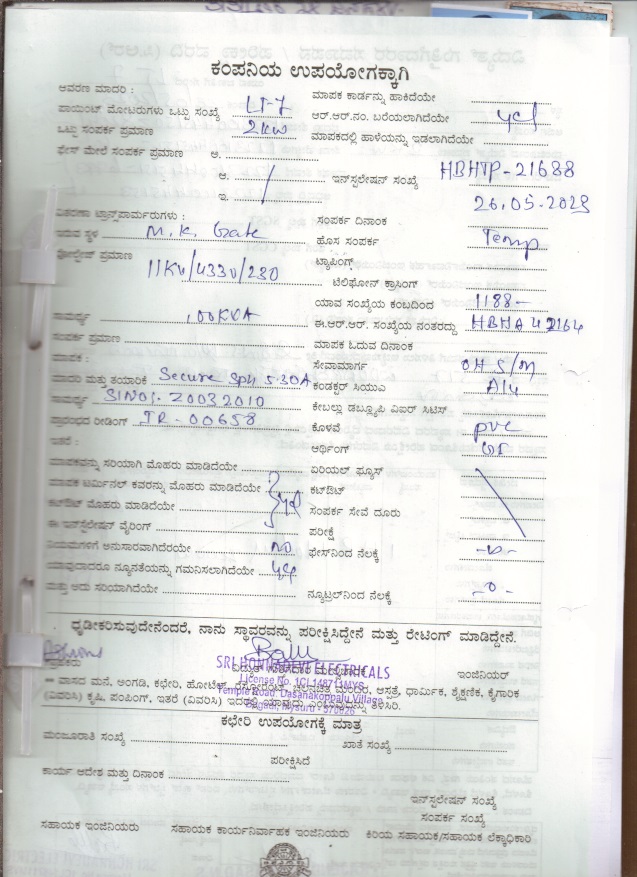 ಕಂಪನಿಯ ಉಪಯೋಗಕ್ಕಾಗಿ
ಆವರಣ ಮಾದರಿ : LT-7 ಮಾಪಕ ಕಾರ್ಡನ್ನು ಹಾಕಿದೆಯೇ
ಪಾಯಿಂಟ್ ಮೋಟರುಗಳು ಒಟ್ಟು ಸಂಖ್ಯೆ ಆರ್.ಆರ್.ನಂ. ಬರೆಯಲಾಗಿದೆಯೇ yes
ಒಟ್ಟು ಸಂಪರ್ಕ ಪ್ರಮಾಣ 2kw ಮಾಪಕದಲ್ಲಿ ಹಾಳೆಯನ್ನು ಇಡಲಾಗಿದೆಯೇ
ಫೇಸ್ ಮೇಲೆ ಸಂಪರ್ಕ ಪ್ರಮಾಣ ಅ.
ಆ. ಇನ್‌ಸ್ಟಲೇಷನ್ ಸಂಖ್ಯೆ HBHTP-21688
ಇ. 26.05.2023
ವಿತರಣಾ ಟ್ರಾನ್ಸ್‌ಫಾರ್ಮರುಗಳು : ಸಂಪರ್ಕ ದಿನಾಂಕ
ಇರುವ ಸ್ಥಳ M.K. Gate ಹೊಸ ಸಂಪರ್ಕ Temp
ವೋಲ್ಟೇಜ್ ಪ್ರಮಾಣ 11KV/433V/230 ಟ್ಯಾಪಿಂಗ್
ಟೆಲಿಫೋನ್ ಕ್ರಾಸಿಂಗ್
ಯಾವ ಸಂಖ್ಯೆಯ ಕಂಬದಿಂದ 1188-
ಸಾಮರ್ಥ್ಯ 100KVA ಈ.ಆರ್.ಆರ್. ಸಂಖ್ಯೆಯ ನಂತರದ್ದು HBHA 42164
ಸಂಪರ್ಕ ಪ್ರಮಾಣ ಮಾಪಕ ಓದುವ ದಿನಾಂಕ
ಮಾಪಕ : ಸೇವಾಮಾರ್ಗ OH S/M
ಮಾದರಿ ಮತ್ತು ತಯಾರಿಕೆ Secure Sph 5-30A ಕಂಡಕ್ಟರ್ ಸಿಯುಎ Alu
ಸಾಮರ್ಥ್ಯ ಕೇಬಲ್ಲು ಡಬ್ಲ್ಯೂಪಿ ವಿಐರ್ ಸಿಟಿಸ್
ಪ್ರಾರಂಭದ ರೀಡಿಂಗ್ IR - 00658 ಕೊಳವೆ pvc
ಇತರೆ : ಅರ್ಥಿಂಗ್
ಮಾಪಕವನ್ನು ಸರಿಯಾಗಿ ಮೊಹರು ಮಾಡಿದೆಯೇ ಏರಿಯಲ್ ಫ್ಯೂಸ್
ಮಾಪಕ ಟರ್ಮಿನಲ್ ಕವರನ್ನು ಮೊಹರು ಮಾಡಿದೆಯೇ yes ಕಟ್‌ಔಟ್
ಕಟ್‌ಔಟ್ ಮೊಹರು ಮಾಡಿದೆಯೇ ಸಂಪರ್ಕ ಸೇವೆ ದೂರು
ಈ ಇನ್‌ಸ್ಟಲೇಷನ್ ವೈರಿಂಗ್ ಪರೀಕ್ಷೆ
ನಿಯಮಗಳಿಗೆ ಅನುಸಾರವಾಗಿದೆರಯೇ NO ಫೇಸ್‌ನಿಂದ ನೆಲಕ್ಕೆ -0-
ಯಾವುದಾದರೂ ನ್ಯೂನತೆಯನ್ನು ಗಮನಿಸಲಾಗಿದೆಯೇ yes
ಮತ್ತು ಅದು ಸರಿಯಾಗಿದೆಯೇ ನ್ಯೂಟ್ರಲ್‌ನಿಂದ ನೆಲಕ್ಕೆ -0-
ಧೃಡೀಕರಿಸುವುದೇನೆಂದರೆ, ನಾನು ಸ್ಥಾವರವನ್ನು ಪರೀಕ್ಷಿಸಿದ್ದೇನೆ ಮತ್ತು ರೇಟಿಂಗ್ ಮಾಡಿದ್ದೇನೆ.
SRI HONNADEVI ELECTRICALS
ಗ್ರಾಹಕರು ಇಂಜಿನಿಯರ್
License No. 1CL14871MYS
= ವಾಸದ ಮನೆ, ಅಂಗಡಿ, ಕಛೇರಿ, ಹೋಟೆಲ್, ರೆಸ್ಟೋರೆಂಟ್, ಚಲನಚಿತ್ರ ಮಂದಿರ, ಆಸ್ಪತ್ರೆ, ಧಾರ್ಮಿಕ, ಶೈಕ್ಷಣಿಕ, ಕೈಗಾರಿಕ
Temple Road, Dasanakoppalu Village
(ವಿವರಿಸಿ) ಕೃಷಿ, ಪಂಪಿಂಗ್, ಇತರೆ (ವಿವರಿಸಿ) ಇದರಲ್ಲಿ ಯಾವುದು ಎಂಬುದನ್ನು ತಿಳಿಸಿರಿ.
ಕಛೇರಿ ಉಪಯೋಗಕ್ಕೆ ಮಾತ್ರ
ಮಂಜೂರಾತಿ ಸಂಖ್ಯೆ ಖಾತೆ ಸಂಖ್ಯೆ
ಪರೀಕ್ಷಿಸಿದೆ
ಕಾರ್ಯ ಆದೇಶ ಮತ್ತು ದಿನಾಂಕ
ಇನ್‌ಸ್ಟಲೇಷನ್ ಸಂಖ್ಯೆ
ಸಂಪರ್ಕ ಸಂಖ್ಯೆ
ಸಹಾಯಕ ಇಂಜಿನಿಯರು ಸಹಾಯಕ ಕಾರ್ಯನಿರ್ವಾಹಕ ಇಂಜಿನಿಯರು ಕಿರಿಯ ಸಹಾಯಕ/ಸಹಾಯಕ ಲೆಕ್ಕಾಧಿಕಾರಿ